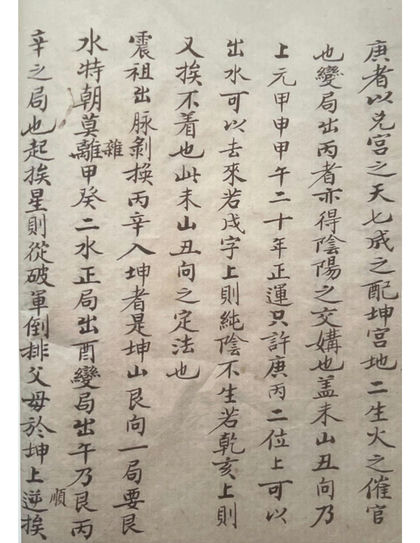 庚者以兌宮之天七成之配坤宮地二生火之催官
也變局出丙者亦得陰陽之交媾也盖未山丑向乃
上元甲申甲午二十年正運只許庚丙二位上可以
出水可以去來若戌字上則純陰不生若乾亥上則
又挨不着也此未山丑向之定法也
震祖出脉剝換丙辛入坤者是坤山艮向一局要艮
雜
水特朝莫離甲癸二水正局出酉變局出午乃艮丙
順
辛之局也起挨星則從破軍倒排父母於坤上逆挨